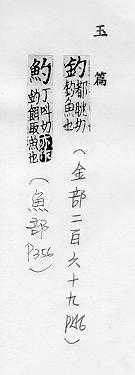 玉篇
釣 都叫切
釣魚也
(金部二百六十九 P246)
魡 丁叫切 亦作
釣餌取魚也
(魚部 P356)